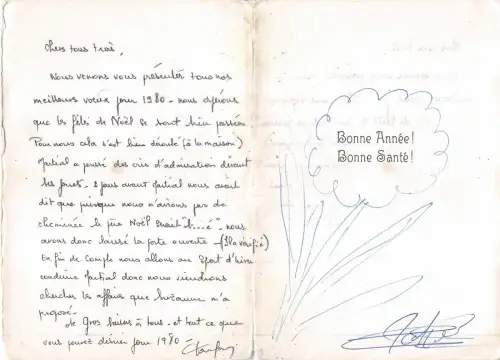 Chers tous trois,
Nous venons vous présenter tous nos
meilleurs vœux pour 1980 - nous espérons
que les fêtes de Noël se sont bien passées
Pour nous cela s'est bien déroulé (à la maison)
Martial a poussé des cris d'admiration devant
les jouets. 2 jours avant Martial nous avait
dit que puisque nous n'avions pas de
cheminée le père Noël serait "b...é". nous
avons donc laissé la porte ouverte - (Il a vérifié)
En fin de compte nous allons au Sport d'hiver
conduire Martial donc nous viendrons
chercher les affaires que Suzanne m'a
proposé -
de Gros baisers à tous - et tout ce que
vous pouvez désirer pour 1980 -
Bonne Année!
Bonne Santé!